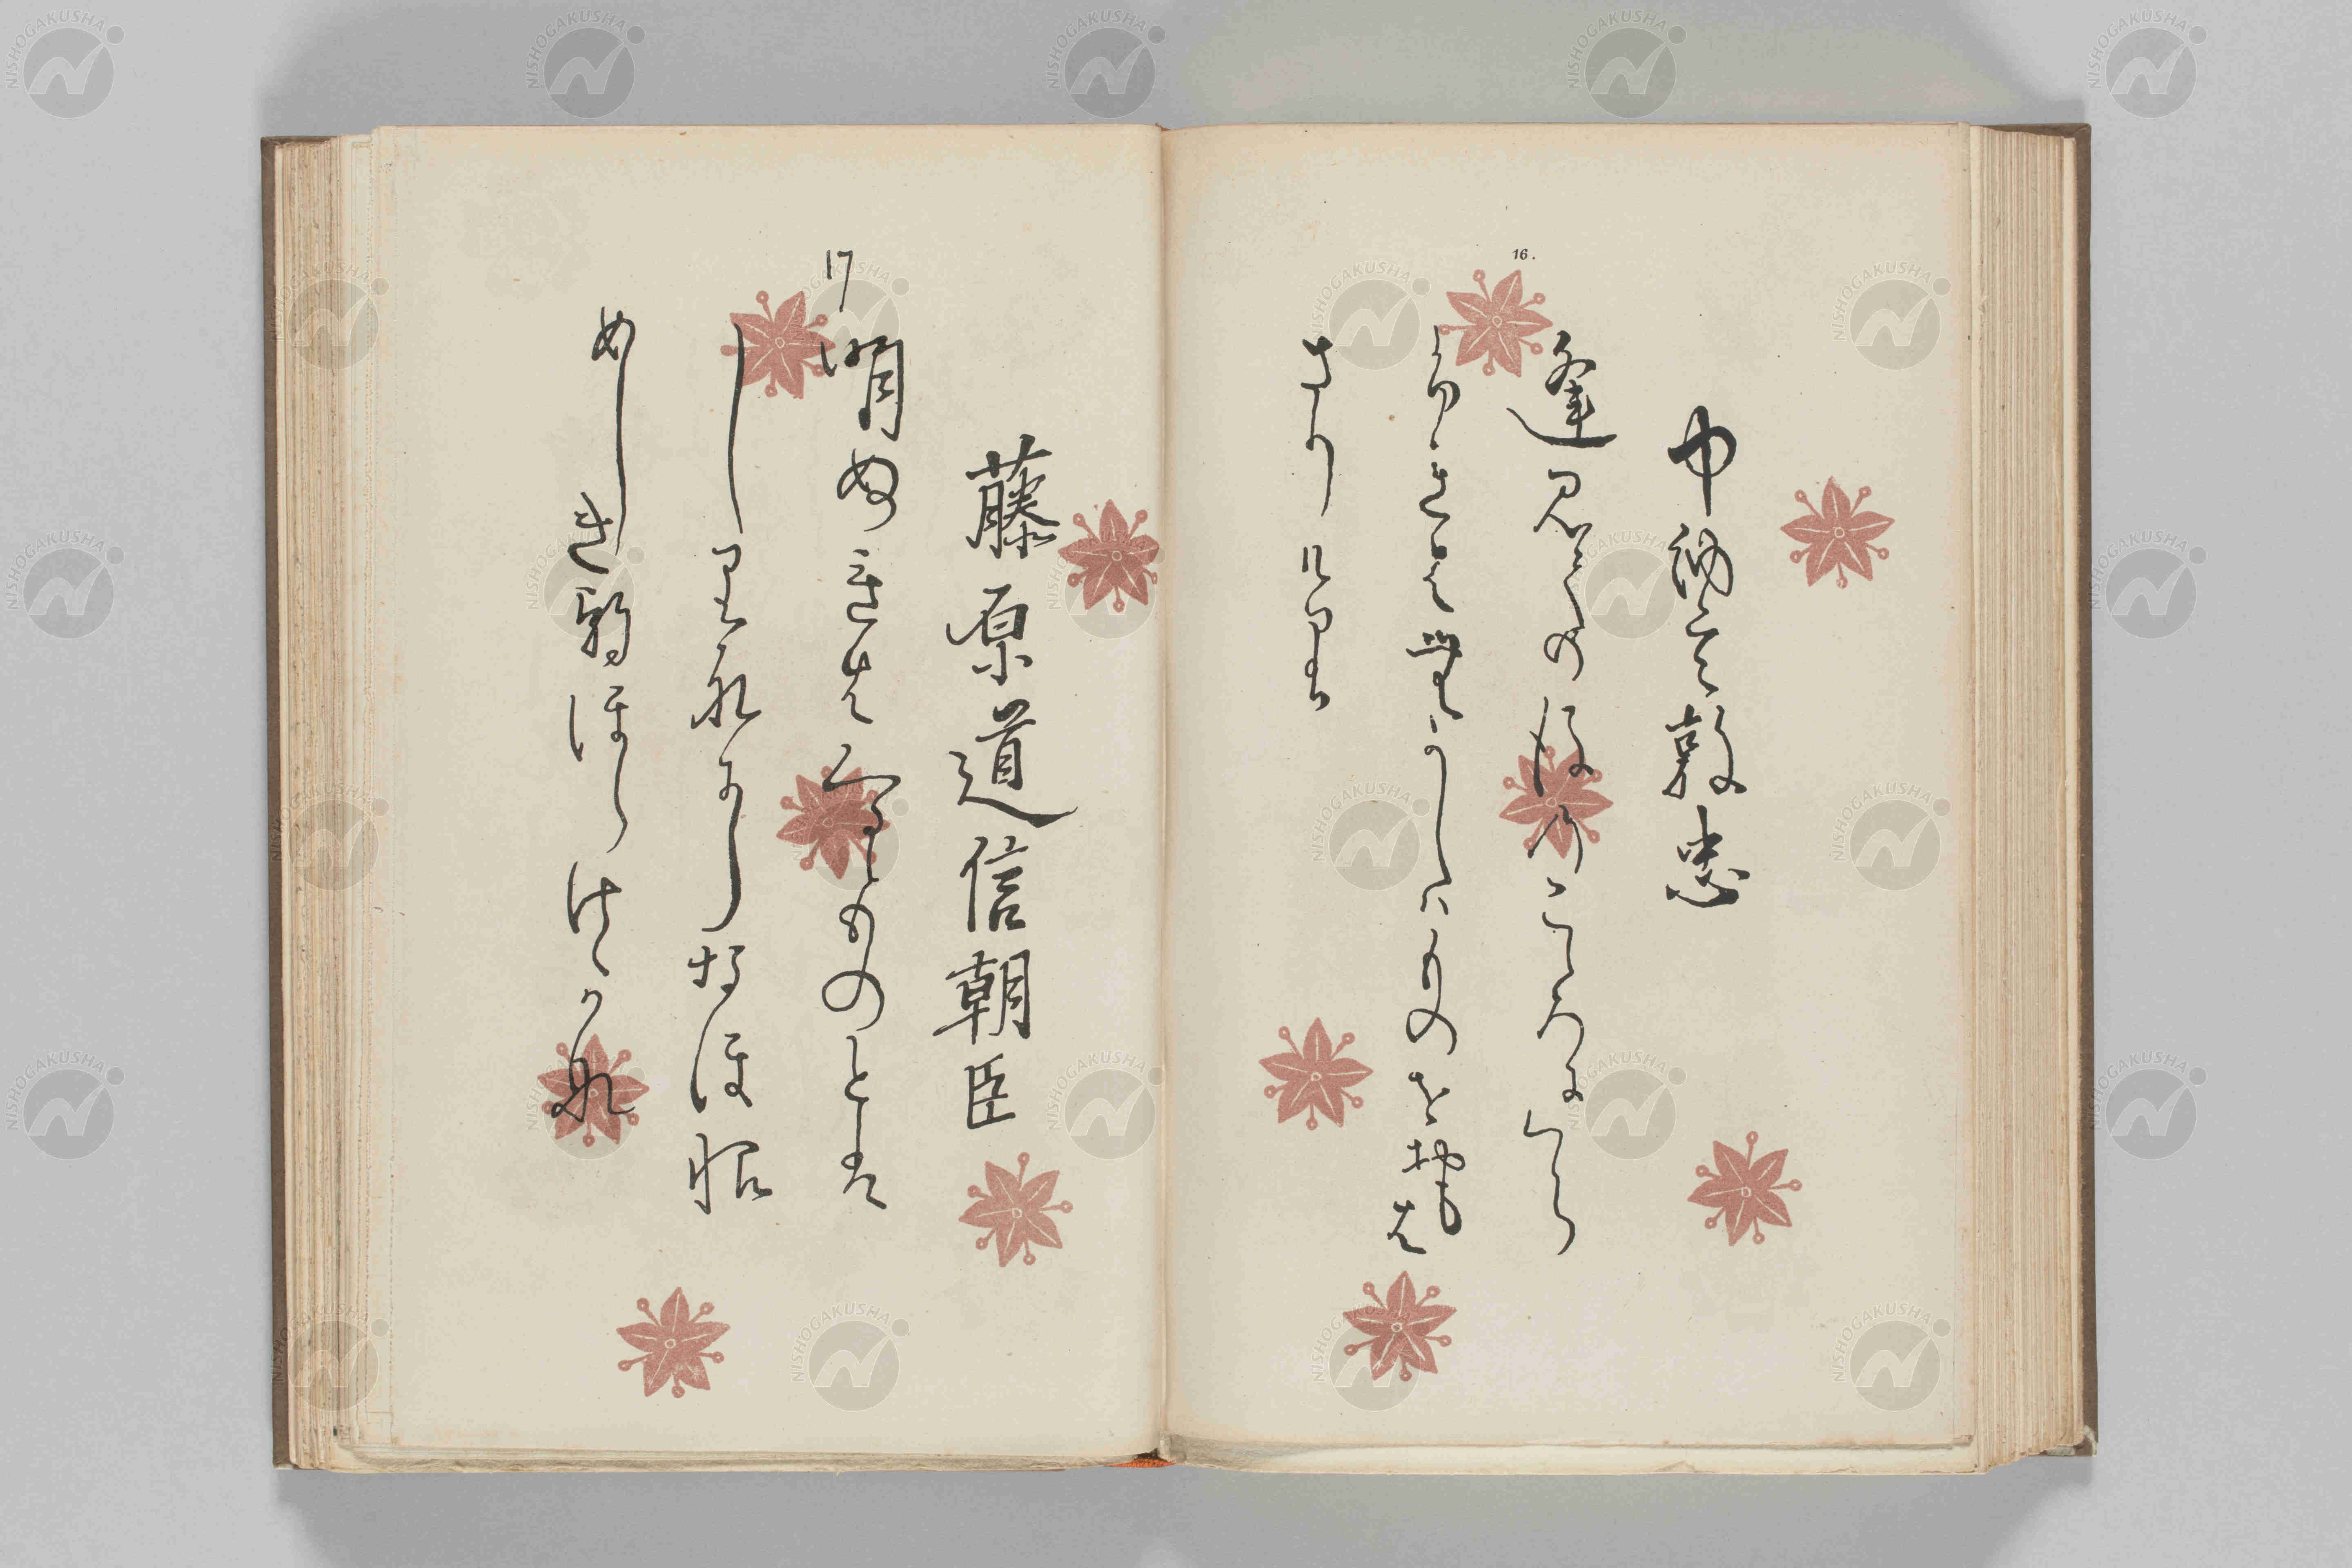 16.
中納言敦忠
逢見ての後のこゝろにくら
ふれはむかしはものをおもは
さりけり
17
藤原道信朝臣
明ぬれはくるゝものとは
しりなからなほ恨
めしき朝ほらけかな
NISHOGAKUSHA